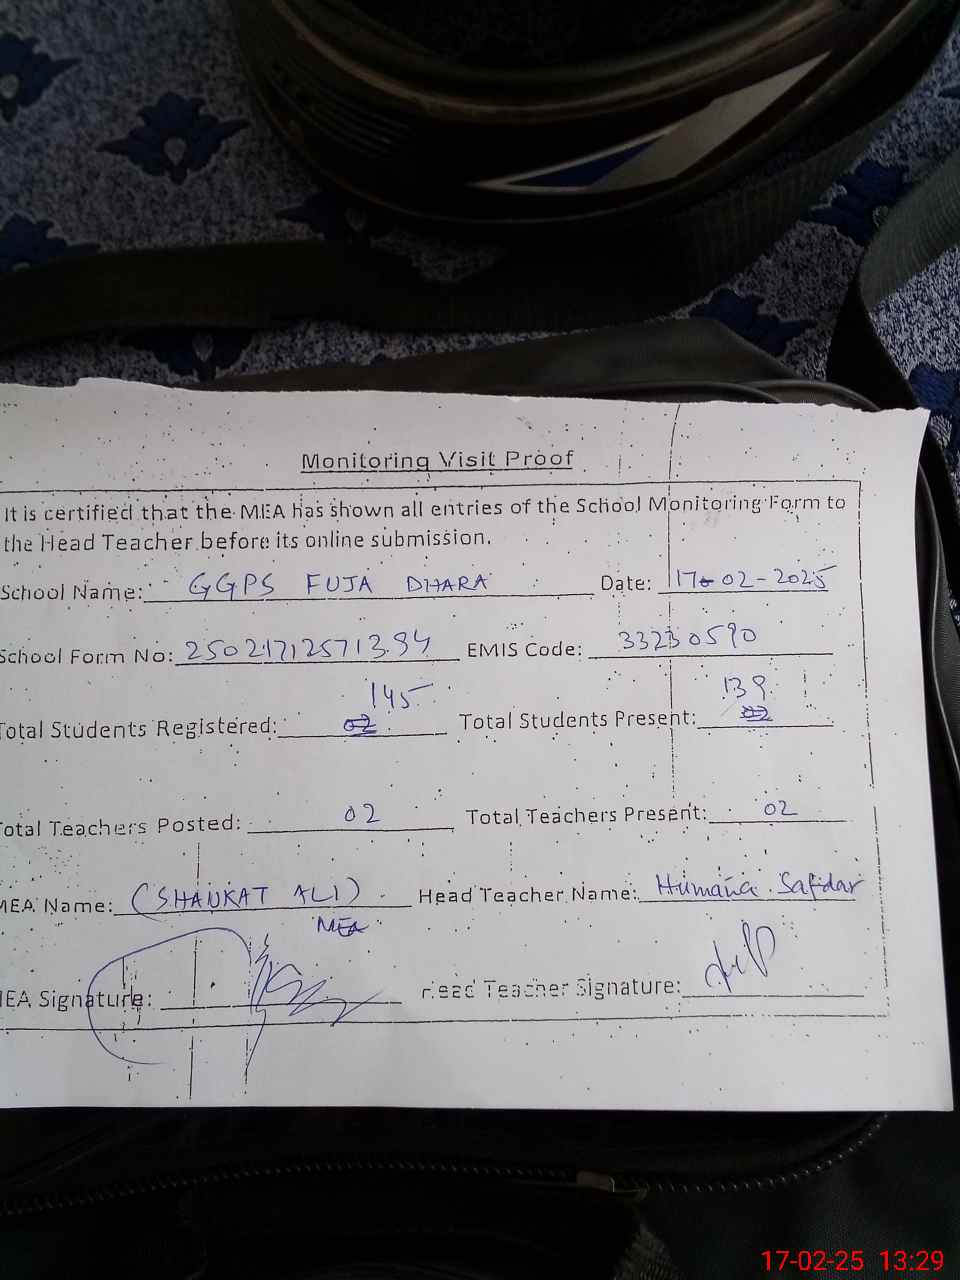 Monitoring Visit Proof
It is certified that the MEA has shown all entries of the School Monitoring Form to
the Head Teacher before its online submission.
School Name: GGPS FUJA DHARA Date: 17-02-2025
School Form No: 25021712571394 EMIS Code: 33230590
145 139
Total Students Registered: 02 Total Students Present: 02
Total Teachers Posted: 02 Total Teachers Present: 02
MEA Name: (SHAUKAT ALI) Head Teacher Name: Humaira Safdar
MEA
MEA Signature: Head Teacher Signature:
17-02-25 13:29